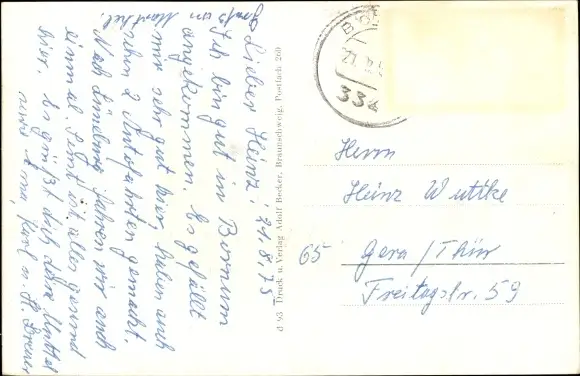 Lieber Heinz! 21.8.73
Ich bin gut in Bornum
angekommen. Es gefällt
mir sehr gut hier, haben auch
schon 2 Autofahrten gemacht.
Nach Lüneburg fahren wir auch
einmal. Sonst ist alles gesund
hier. Es grüßt dich deine Mutter
Karl u.
Gruß an
d 93 Druck u. Verlag Adolf Becker, Braunschweig, Postfach 260
Herrn
Heinz Wuttke
65 Gera/Thür
Freitagstr. 59
334